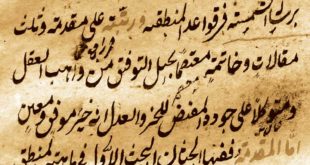 الشمسية فى قواعد المنطقية ورتبته على مقدمة وثلث
مقالات وخاتمة معتصما بحبل التوفيق من واهب العقل
ومتوكلا على جوده المفيض للخير والعدل انه خير موفق ومعين
اما المقدمة ففيها بحثان البحث الاول فى ماهية المنطق